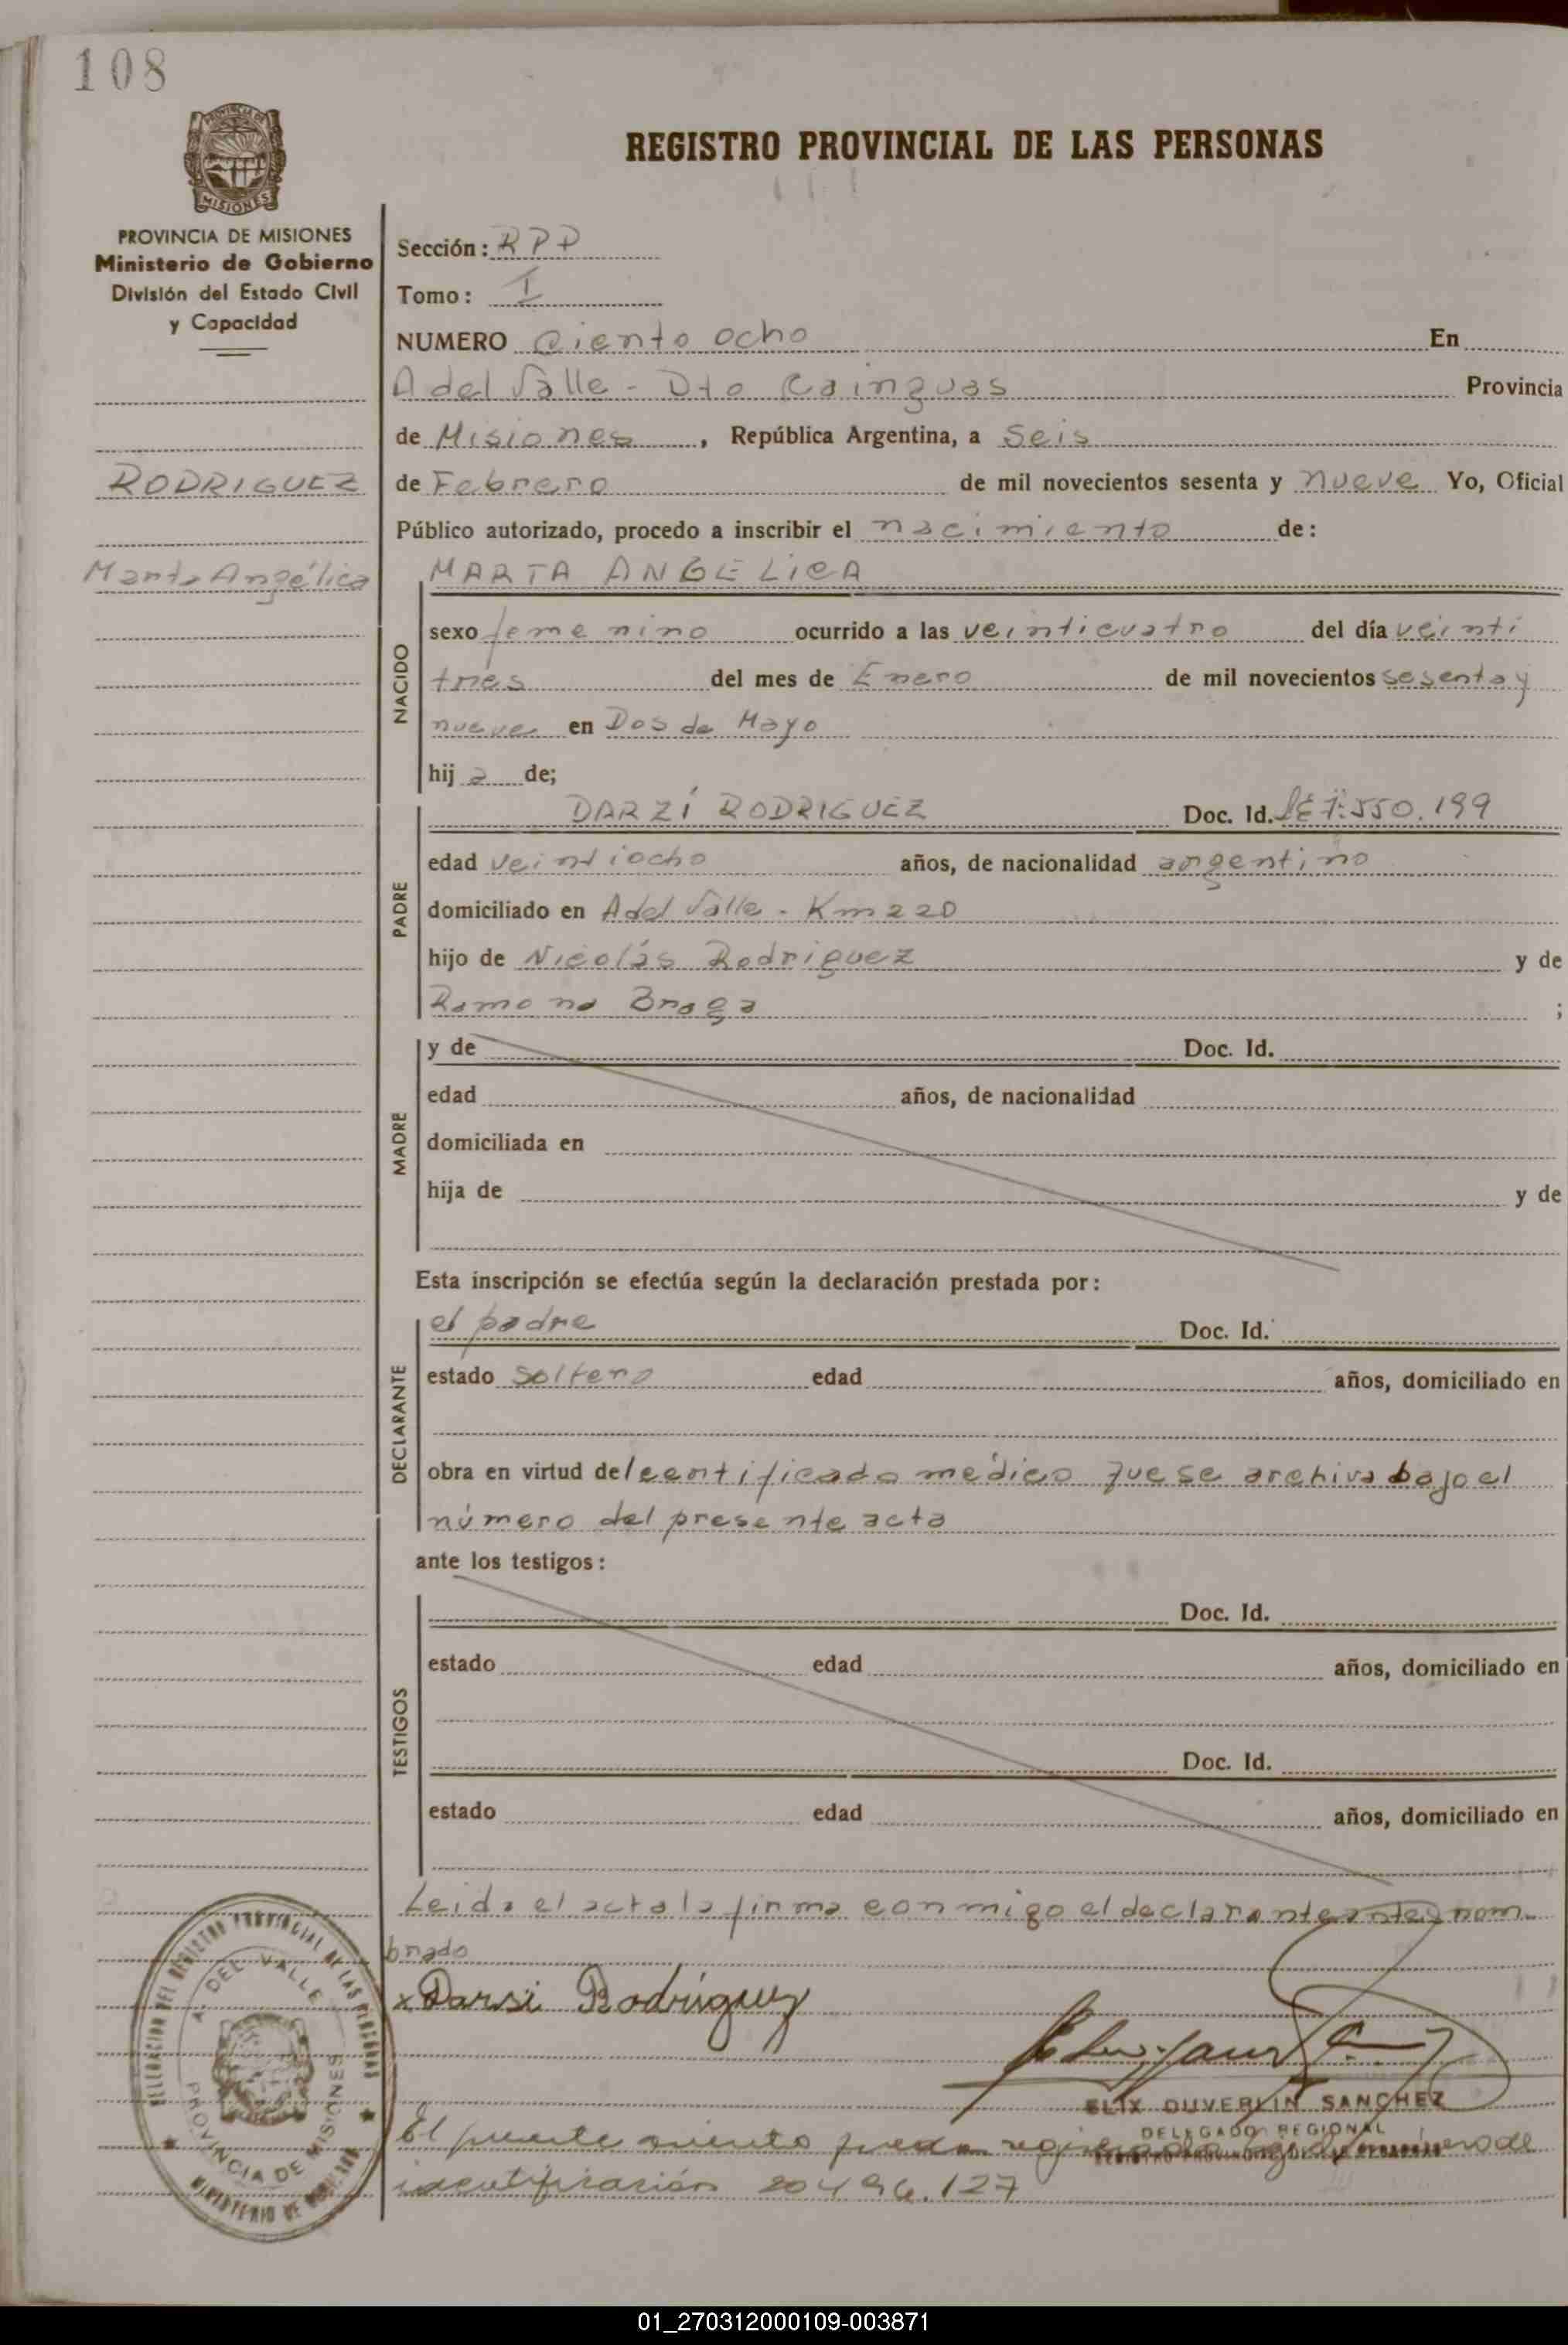 108
PROVINCIA DE
MISIONES
REGISTRO PROVINCIAL DE LAS PERSONAS
PROVINCIA DE MISIONES
Ministerio de Gobierno
División del Estado Civil
y Capacidad
RODRIGUEZ
Marta Angélica
Sección: RPP
Tomo: I
NUMERO Ciento ocho En
A del Valle - Dto Cainguas Provincia
de Misiones, República Argentina, a Seis
de Febrero de mil novecientos sesenta y nueve Yo, Oficial
Público autorizado, procedo a inscribir el nacimiento de:
MARTA ANGELICA
NACIDO
sexo femenino ocurrido a las veinticuatro del día veinti
tres del mes de Enero de mil novecientos sesenta y
nueve en Dos de Mayo
hija de;
PADRE
DARZÍ RODRIGUEZ Doc. Id. LE 7.550.199
edad veintiocho años, de nacionalidad argentino
domiciliado en A del Valle - Km 220
hijo de Nicolás Rodriguez y de
Ramona Braga ;
MADRE
y de Doc. Id.
edad años, de nacionalidad
domiciliada en
hija de y de
Esta inscripción se efectúa según la declaración prestada por:
DECLARANTE
el padre Doc. Id.
estado soltero edad años, domiciliado en
obra en virtud del certificado médico que se archiva bajo el
número del presente acta
ante los testigos:
TESTIGOS
Doc. Id.
estado edad años, domiciliado en
Doc. Id.
estado edad años, domiciliado en
Leida el acta la firma conmigo el declarante antes nom
brado
x Darsi Rodriguez
ELIX DUVERLIN SANCHEZ
DELEGADO REGIONAL
REGISTRO PROVINCIAL DE LAS PERSONAS
DELEGACION DEL REGISTRO PROVINCIAL DE LAS PERSONAS
A. DEL VALLE
PROVINCIA DE MISIONES
MINISTERIO DE GOBIERNO
El presente asiento queda de
identificación 20496.127
01_270312000109-003871